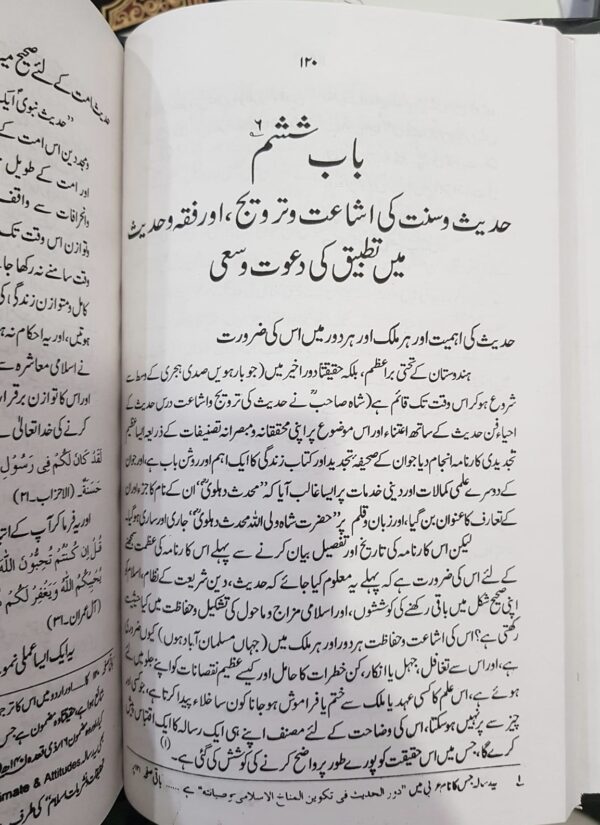 ۱۲۰
باب ششم ۶
حدیث و سنت کی اشاعت و ترویج، اور فقہ و حدیث
میں تطبیق کی دعوت و سعی
حدیث کی اہمیت اور ہر ملک اور ہر دور میں اس کی ضرورت
ہندوستان کے تحتی براعظم، بلکہ حقیقتا دور اخیر میں (جو بارہویں صدی ہجری کے وسط سے
شروع ہوکر اس وقت تک قائم ہے) شاہ صاحبؒ نے حدیث کی ترویج و اشاعت درس حدیث کے
احیاء فن حدیث کے ساتھ اعتناء اور اس موضوع پر اپنی محققانہ و مبصرانہ تصنیفات کے ذریعہ ایسا عظیم
تجدیدی کارنامہ انجام دیا جو ان کے صحیفۂ تجدید اور کتاب زندگی کا ایک اہم اور روشن باب ہے، اور جو ان
کے دوسرے علمی کمالات اور دینی خدمات پر ایسا غالب آیا کہ "محدث دہلویؒ" ان کے نام کا جزء اور ان
کے تعارف کا عنوان بن گیا، اور زبان و قلم پر "حضرت شاہ ولی اللہ محدث دہلویؒ" جاری اور ساری ہوگیا۔
لیکن اس کارنامہ کی تاریخ اور تفصیل بیان کرنے سے پہلے اس کارنامہ کی عظمت سمجھنے
کے لئے اس کی ضرورت ہے کہ پہلے یہ معلوم کیا جائے کہ حدیث، دین و شریعت کے نظام، اسلام کو
اپنی صحیح شکل میں باقی رکھنے کی کوششوں، اور اسلامی مزاج و ماحول کی تشکیل و حفاظت میں کیا حیثیت
رکھتی ہے؟ اس کی اشاعت و حفاظت ہر دور اور ہر ملک میں (جہاں مسلمان آباد ہوں) کیوں ضروری
ہے، اور اس سے تغافل، جہل یا انکار، کن خطرات کا حامل اور کیسے عظیم نقصانات کو اپنے جلو میں لئے
ہوئے ہے، اس علم کا کسی عہد یا ملک سے ختم یا فراموش ہو جانا کون سا خلاء پیدا کرتا ہے، جو کسی اور
چیز سے پُر نہیں ہوسکتا، اس کی وضاحت کے لئے مصنف اپنے ہی ایک رسالہ کا ایک اقتباس پیش
کرے گا، جس میں اس حقیقت کو پورے طور پر واضح کرنے کی کوشش کی گئی ہے۔ (۱)
لے یہ رسالہ جس کا نام عربی میں "دور الحدیث فی تکوین المناخ الاسلامی و صیانتہ" ہے ...... باقی صفحہ
حدیث امت کے لئے صحیح میز
"حدیث نبوی ایک
و مجددین اس امت کے
اور امت کے طویل
و انحرافات سے واقف
و توازن اس وقت تک
وقت سامنے نہ رکھا جا
کامل و متوازن زندگی کی
ہوتیں، اور یہ احکام نہ ہ
نے اسلامی معاشرہ سے
اور اس کا توازن برقرار
کرنے کی خدا تعالیٰ
لَقَدْ كَانَ لَكُمْ فِى رَسُوْلِ
حَسَنَةٌ۔ (الاحزاب۔۲۱)
اور یہ فرما کر آپ کے ات
قُلْ اِنْ كُنْتُمْ تُحِبُّوْنَ اللّٰهَ
يُحْبِبْكُمُ اللّٰهُ وَيَغْفِرْ لَكُمْ
(آل عمران۔۳۱)
یہ ایک ایسا عملی نمو
imate & Attitudes